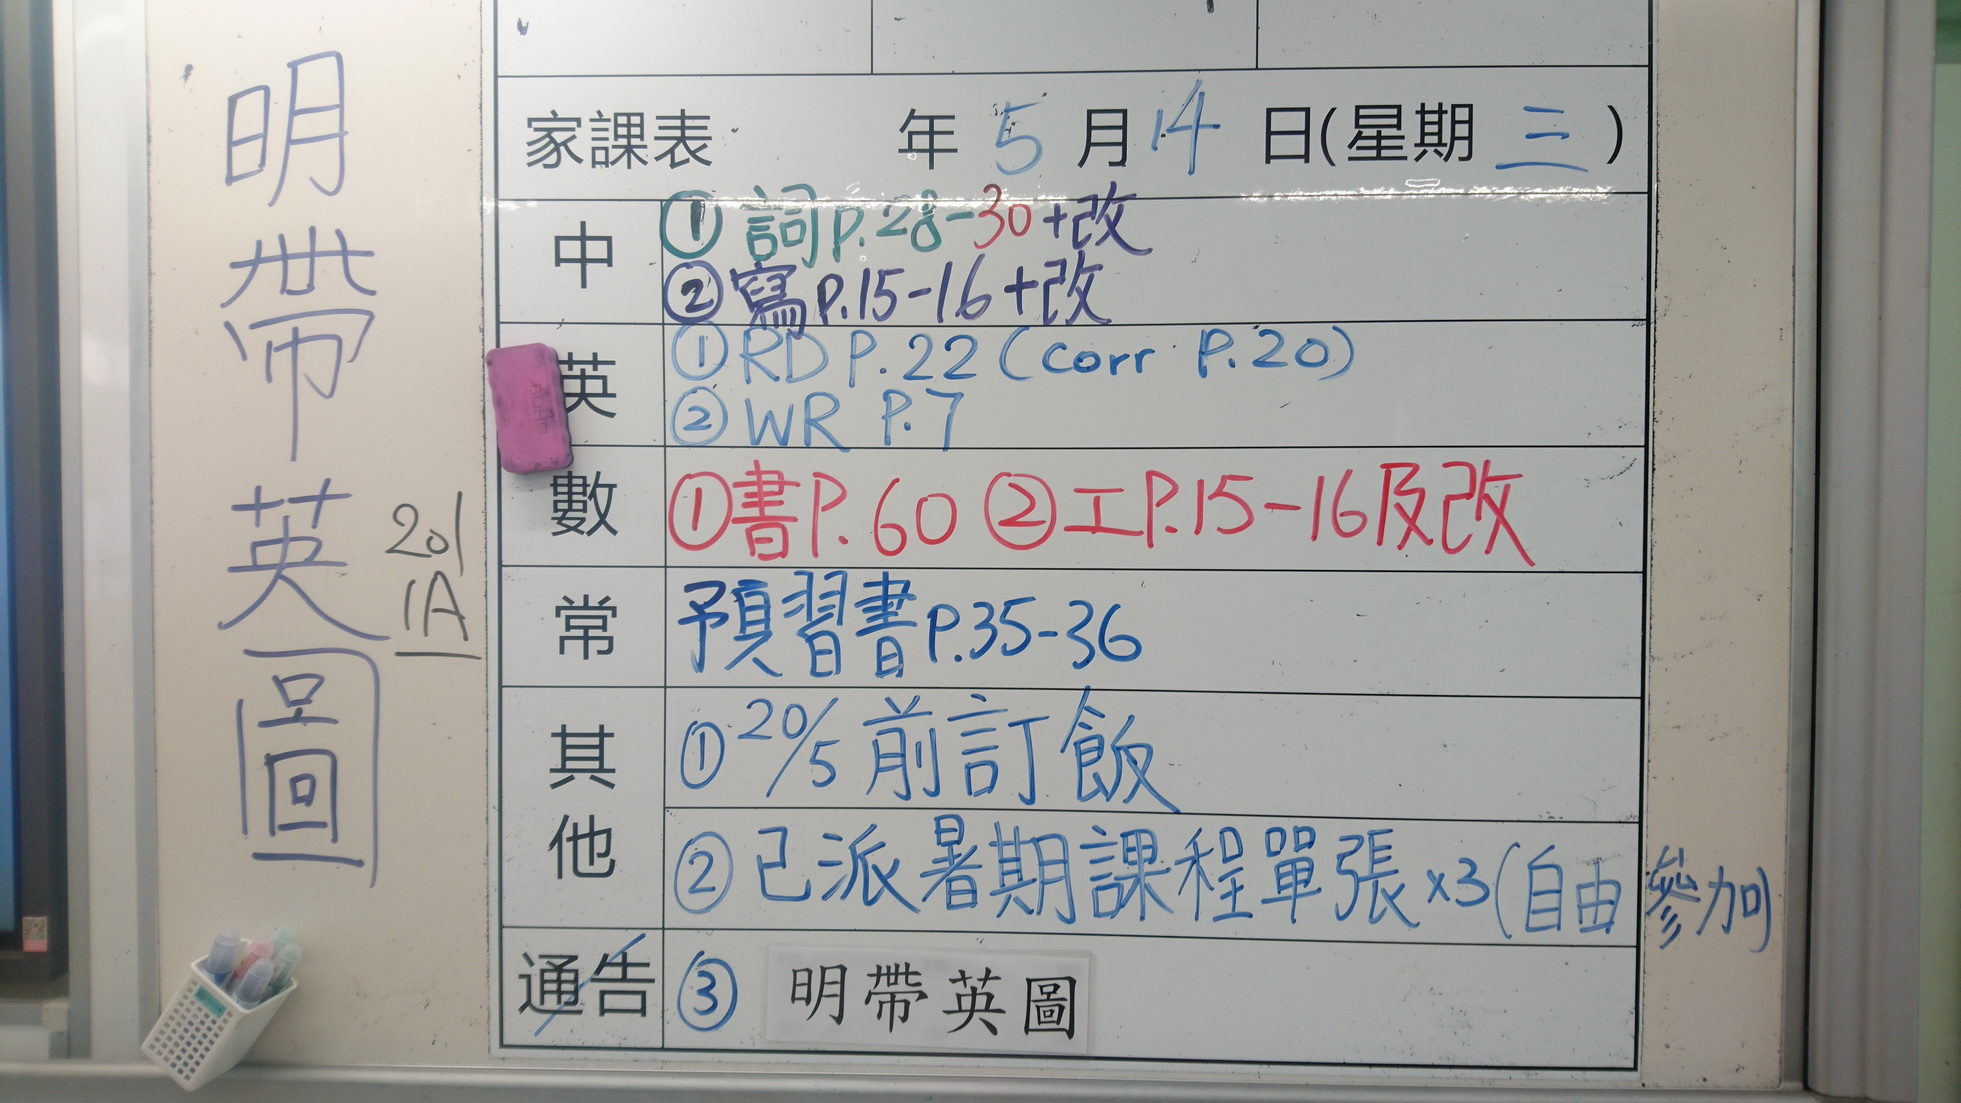 明帶英圖
201
1A
家課表 年 5 月 14 日(星期 三)
中
① 詞 P.28-30+改
② 寫 P.15-16+改
英
① RD P.22 (corr P.20)
② WR P.7
數
①書P.60 ②工P.15-16及改
常
預習書P.35-36
其他
① 20/5 前訂飯
② 已派暑期課程單張x3(自由參加)
通告
③ 明帶英圖